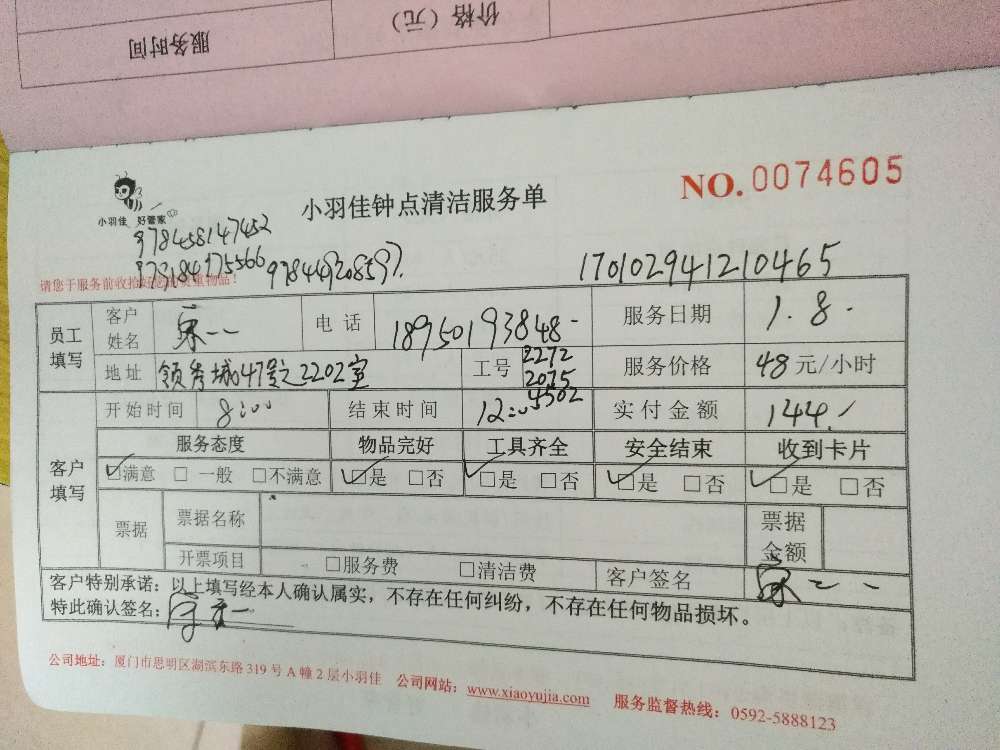 价格（元）
服务时间
NO. 0074605
小羽佳 好管家
小羽佳钟点清洁服务单
978458147452
978184975566 9784492085597.
170102941210465
请您于服务前收拾好您的贵重物品！
员工填写 客户姓名 宋一一 电话 18950193848 服务日期 1.8.
地址 领秀城47号之2202室 工号 2272 2075 4502 服务价格 48元/小时
客户填写 开始时间 8:00 结束时间 12:00 实付金额 144.
服务态度 物品完好 工具齐全 安全结束 收到卡片
☑满意 □一般 □不满意 ☑是 □否 ☑是 □否 ☑是 □否 ☑是 □否
票据 票据名称 票据金额
开票项目 □服务费 □清洁费 客户签名 宋一一
客户特别承诺：以上填写经本人确认属实，不存在任何纠纷，不存在任何物品损坏。
特此确认签名：
公司地址：厦门市思明区湖滨东路319号A幢2层小羽佳 公司网站：www.xiaoyujia.com 服务监督热线：0592-5888123